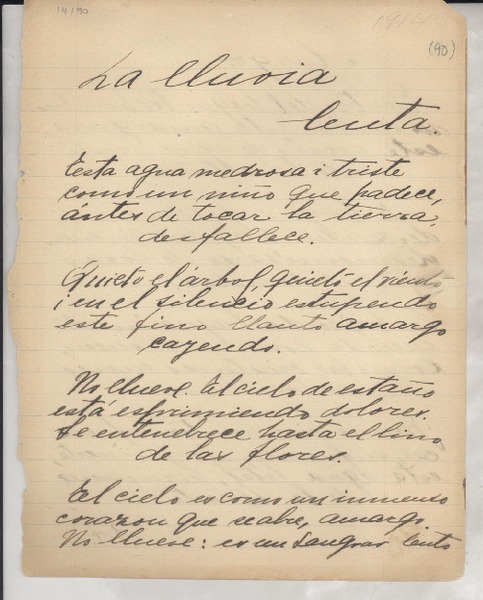 14/90
1914
(90)
La lluvia
lenta.
Esta agua medrosa i triste
como un niño que padece,
ántes de tocar la tierra,
desfallece.
Quieto el árbol, quieto el viento,
i en el silencio estupendo
este fino llanto amargo
cayendo.
No llueve. El cielo de estaño
está esprimiendo dolores.
Se entenebrece hasta el lino
de las flores.
El cielo es como un inmenso
corazon que se abre, amargo.
No llueve: es un sangrar lento